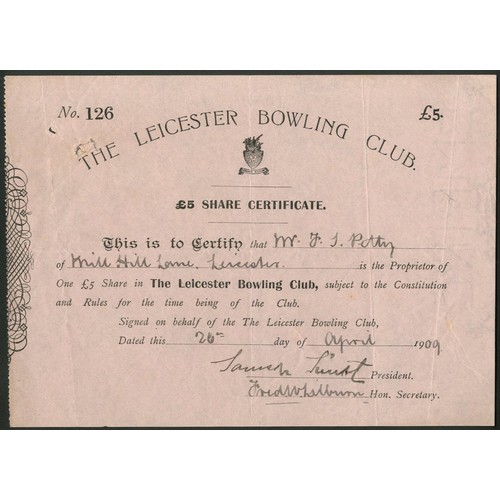 No. 126
£5.
THE LEICESTER BOWLING CLUB.
£5 SHARE CERTIFICATE.
This is to Certify that Mr. F. S. Petty
of Mill Hill Lane, Leicester. is the Proprietor of
One £5 Share in The Leicester Bowling Club, subject to the Constitution
and Rules for the time being of the Club.
Signed on behalf of the The Leicester Bowling Club,
Dated this 20th day of April 1909
President.
Hon. Secretary.